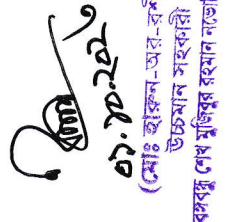 ০১.১০.২০২
(মোঃ হারুন-অর-রশী
উচ্চমান সহকারী
বঙ্গবন্ধু শেখ মুজিবুর রহমান নভো